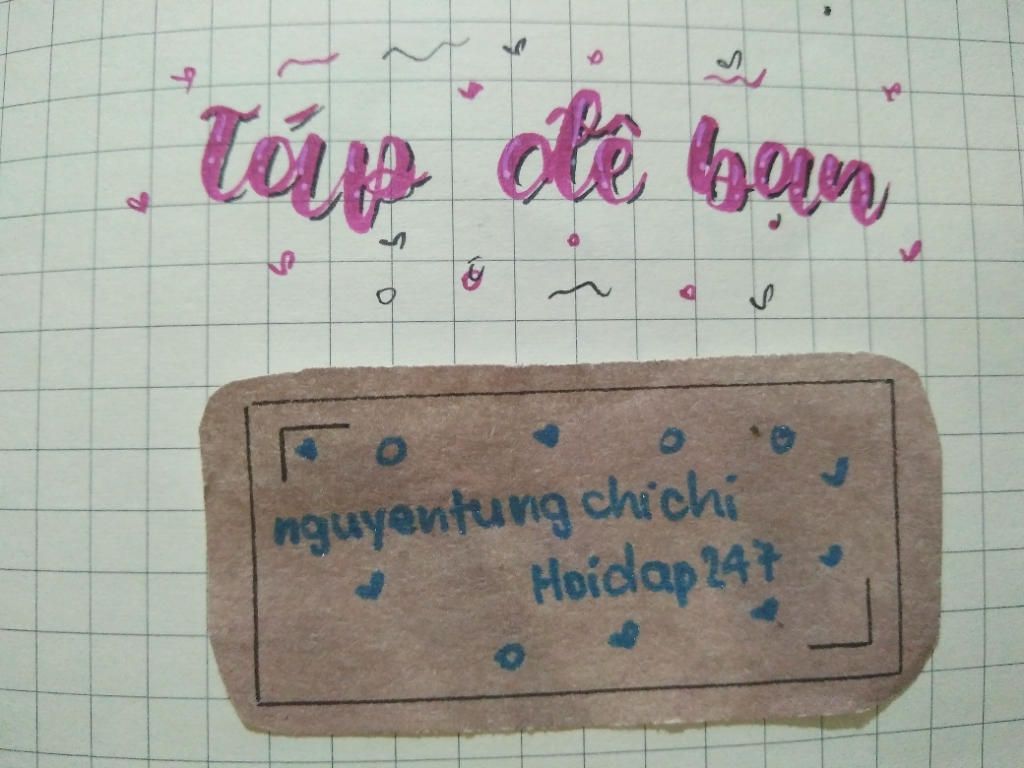 Táp dê bạn
nguyentung chi chi
Hoidap247